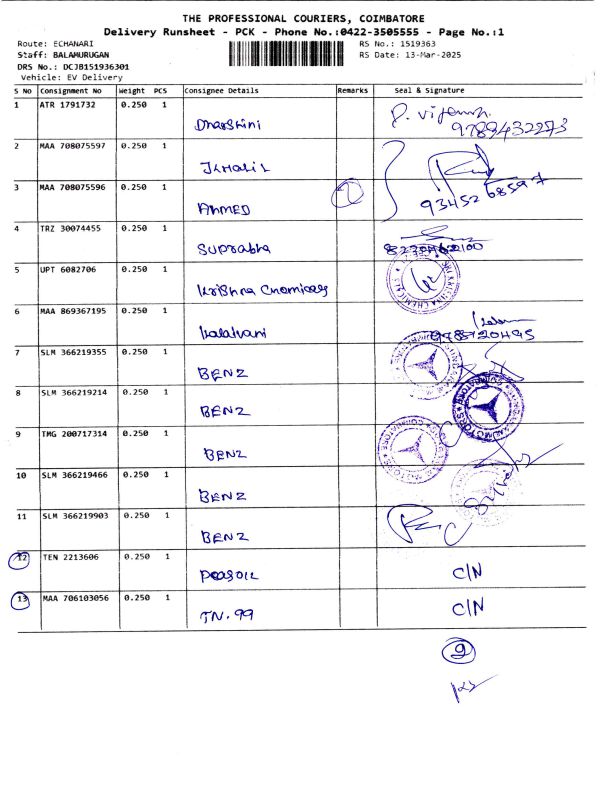 THE PROFESSIONAL COURIERS, COIMBATORE
Delivery Runsheet - PCK - Phone No.:0422-3505555 - Page No.:1
Route: ECHANARI RS No.: 1519363
Staff: BALAMURUGAN RS Date: 13-Mar-2025
DRS No.: DCJB151936301
Vehicle: EV Delivery
S No Consignment No Weight PCS Consignee Details Remarks Seal & Signature
1 ATR 1791732 0.250 1
Dharshini 9789432273
2 MAA 708075597 0.250 1
3 MAA 708075596 0.250 1 2 93452 68597
AHMED
4 TRZ 30074455 0.250 1
Suprabha
5 UPT 6082706 0.250 1
Krishna Chemicals
6 MAA 869367195 0.250 1
Kalaivani
7 SLM 366219355 0.250 1
BENZ
8 SLM 366219214 0.250 1
BENZ
9 TMG 200717314 0.250 1
BENZ
10 SLM 366219466 0.250 1
BENZ
11 SLM 366219903 0.250 1
BENZ
12 TEN 2213606 0.250 1
C/N
13 MAA 706103056 0.250 1
TN.99 C/N
9